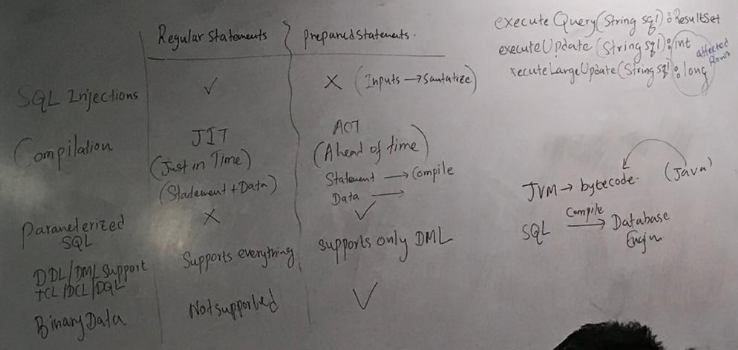 Regular statements
preparedstatements.
SQL Injections
✓
X (Inputs → Sanatatize)
Compilation
JIT
(Just in Time)
(Statement + Data)
AOT
(Ahead of time)
Statement → Compile
Data →
Parameterized
SQL
X
✓
DDL/DML support
TCL/DCL/DQL
Supports everything
supports only DML
Binary Data
Not supported
✓
executeQuery(String sql): ResultSet
executeUpdate (String sql): int
affected
Rows
xecuteLargeUpdate(String sql): long
JVM → bytecode. (javac)
SQL Compile → Database
Engin